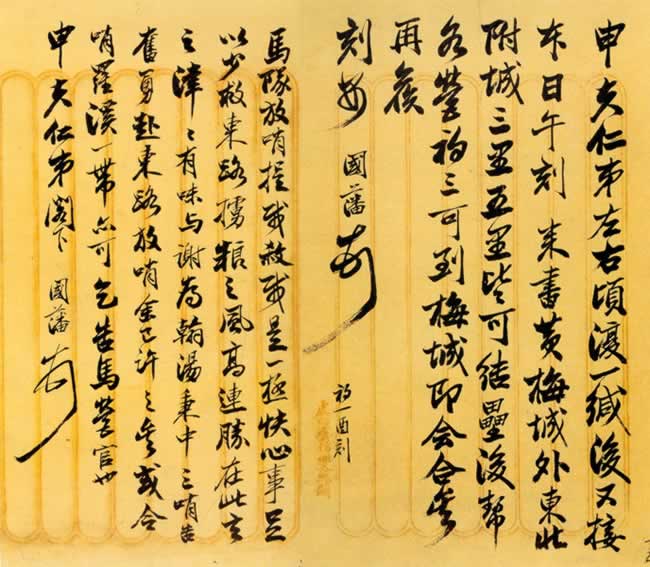 申夫仁弟左右頃復一緘後又接
本日午刻來書黃梅城外東北
附城三里五里皆可結壘後幫
各營初三可到梅城即會合矣
再候
刻安 國藩頓
初一酉刻
馬隊放哨捉賊殺賊是一極快心事足
以少救東路擄粮之風高連勝在此言
之津〻有味与謝為翰湯秉中三哨告
奮勇赴東路放哨余已許之矣或令
哨羅溪一帶亦可乞告馬營官也
申夫仁弟閣下 國藩頓